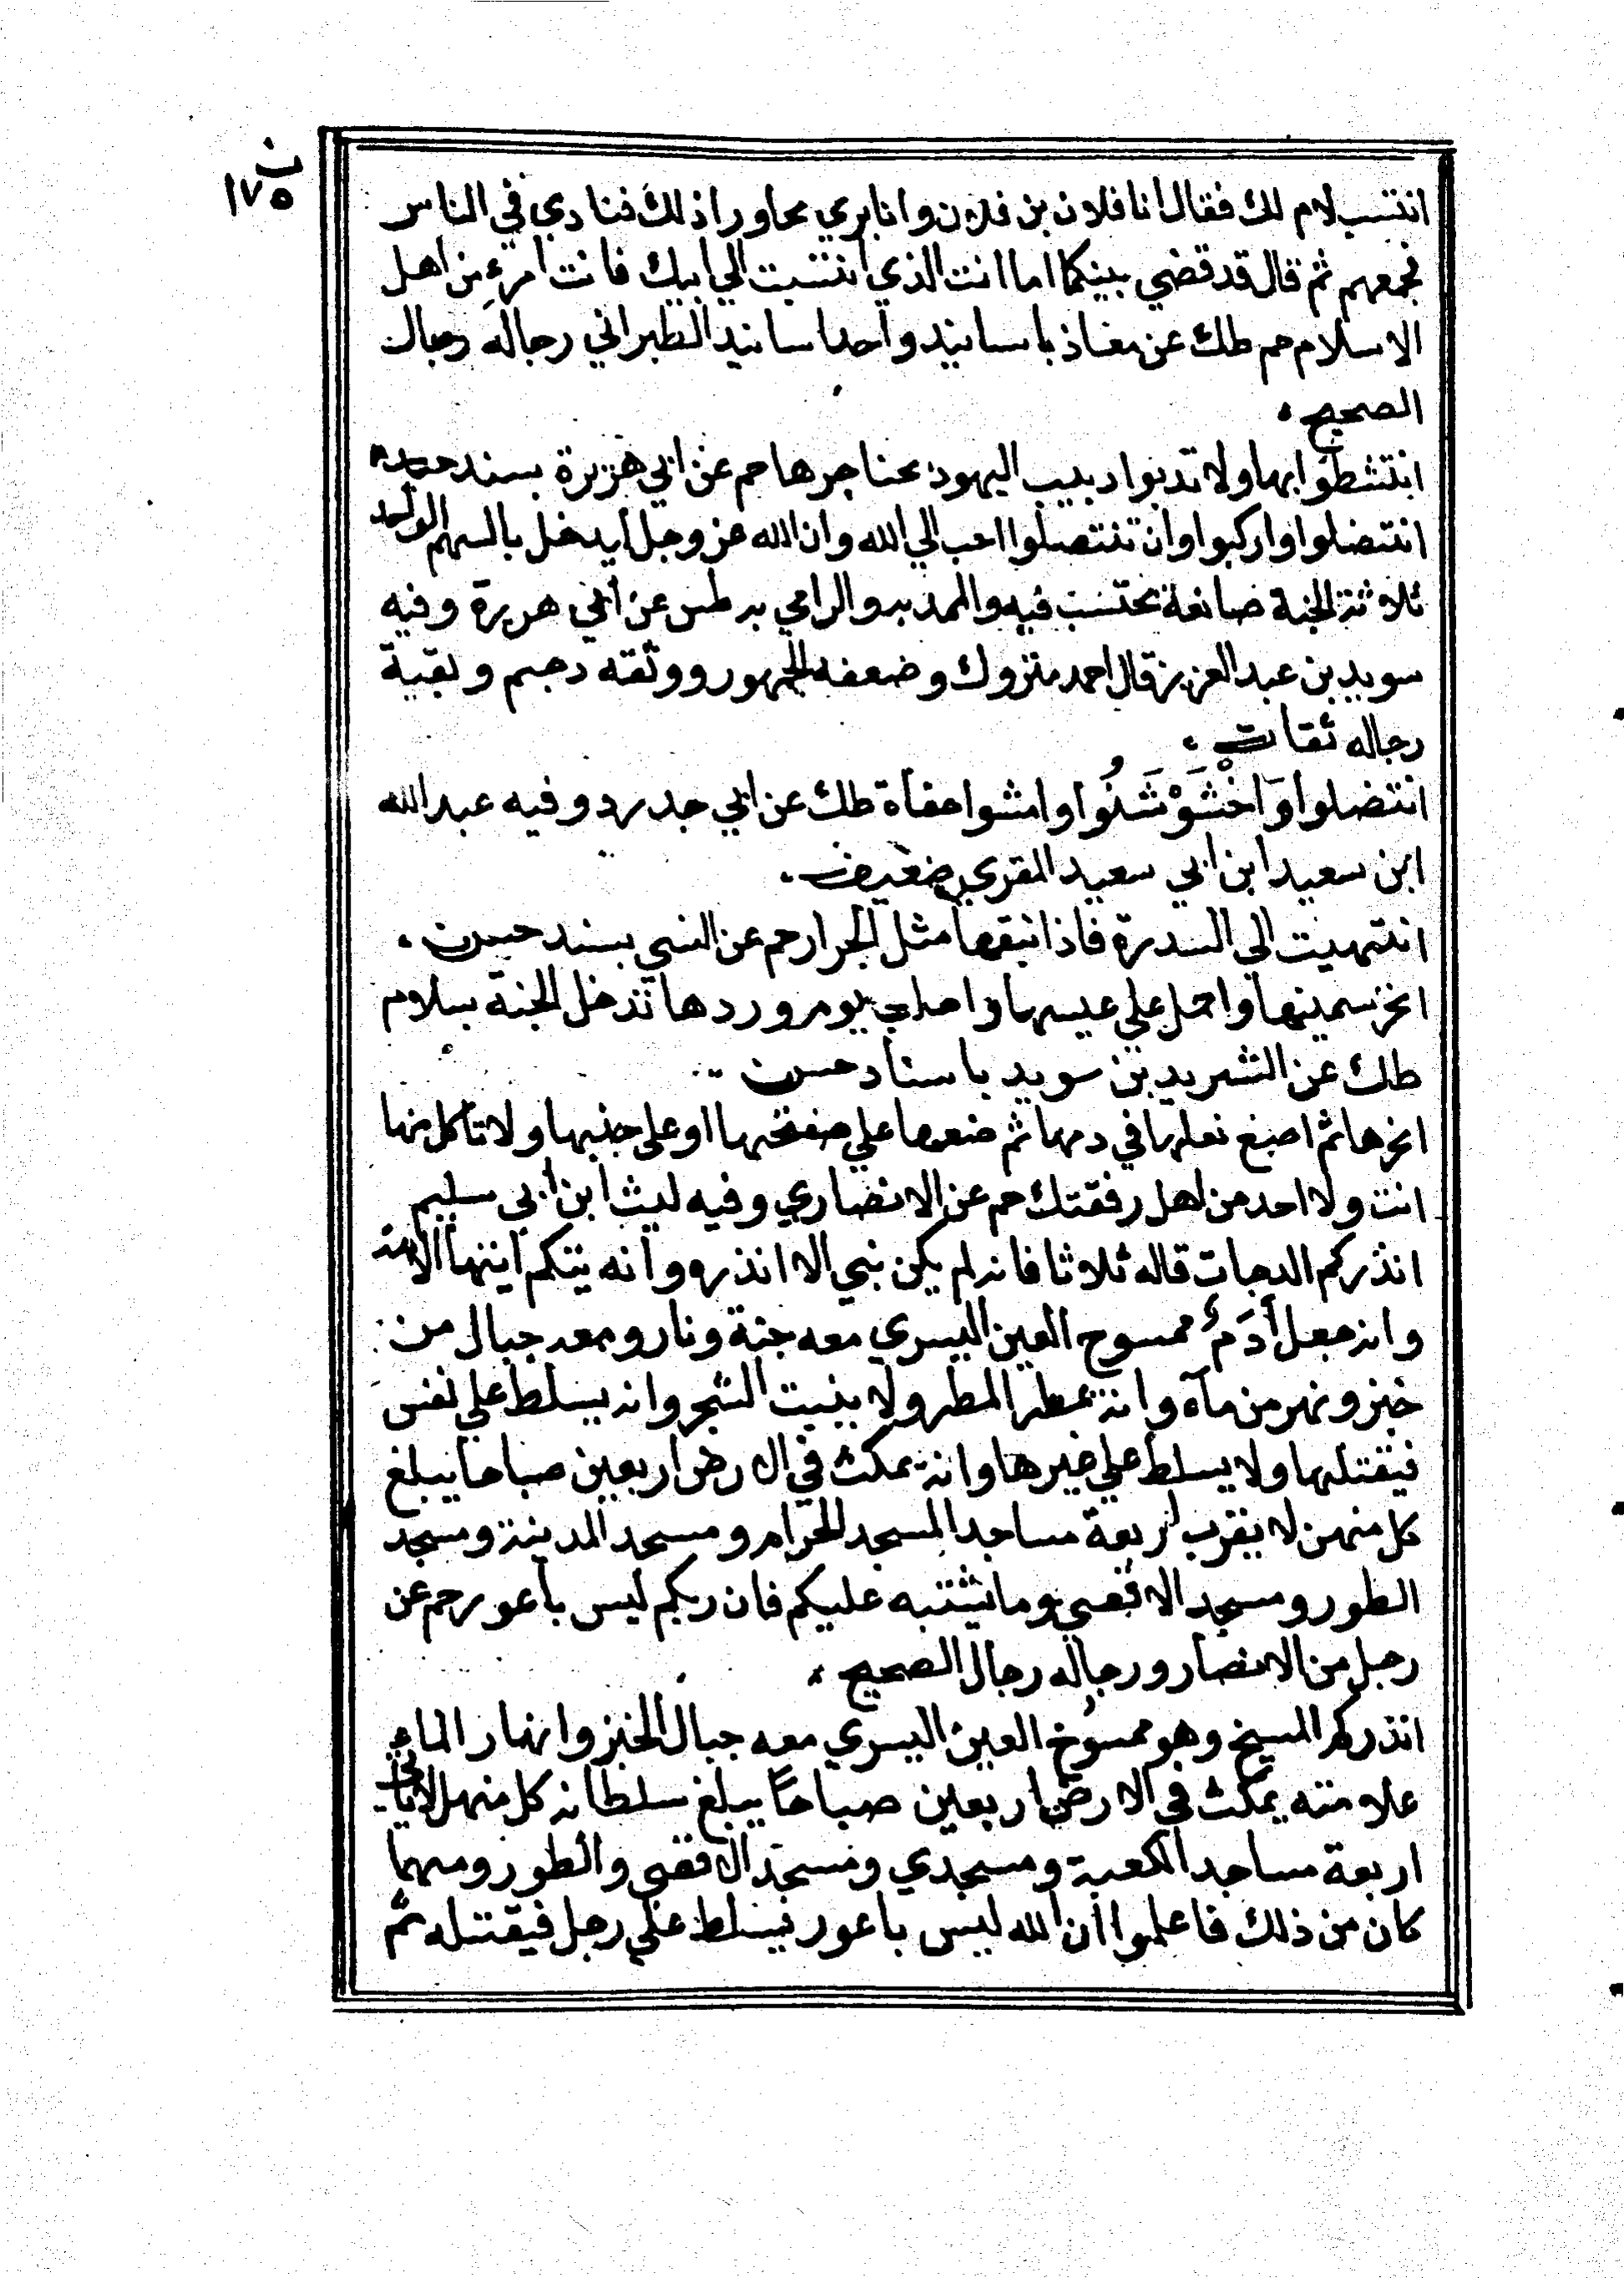 ن
١٧٥
انتسب لام لك فقال انا فلان بن فلان وانا بري مما وراذلك فنادي في الناس
فجمعهم ثم قال قد قضي بينكما اما انت الذي انتسبت الي ابيك فانت امرء من اهل
الاسلام حم طك عن معاذ باسانيد واحد اسانيد الطبراني رجاله رجال
الصحيح
انتشطوا بها ولا تدبوا دبيب اليهود بحناجرها حم عن ابي هريرة بسند حسن
انتضلوا واركبوا وان تنتضلوا احب الي الله وان الله عز وجل ليدخل بالسهم الواحد
ثلاثة الجنة صانعه يحتسب فيه والممد به والرامي به طس عن ابي هريرة وفيه
سويد بن عبد العزيز قال احمد متروك وضعفه الجمهور ووثقه دحيم وبقية
رجاله ثقات
انتضلوا وَاخْشَوْشَنُوا وامشوا حفاة طك عن ابي حدرد وفيه عبد الله
ابن سعيد ابن ابي سعيد المقري ضعيف
انتهيت الي السدرة فاذا نبقها مثل الجرار حم عن انس بسند حسن
انحر سمينها واحمل علي عيسها واحلب يوم وردها تدخل الجنة بسلام
طك عن الشريد بن سويد باسناد حسن
انحرها ثم اصبغ نعلها في دمها ثم ضعها علي صفحتها او علي جنبها ولا تاكل منها
انت ولا احد من اهل رفقتك حم عن الانصاري وفيه ليث ابن ابي سليم
انذركم الدجات قاله ثلاثا فانه لم يكن نبي الا انذره وانه يتكم ايتها الامة
وانه جعل أدَمُ ممسوح العين اليسري معه جنة ونار ومعه جبال من
خبز ونهر من مآء وانه يمطر المطر ولا ينبت الشجر وانه يسلط علي نفس
فيقتلها ولا يسلط علي غيرها وانه يمكث في الارض اربعين صباحا يبلغ
كل منهن لا يقرب اربعة مساجد المسجد الحرام ومسجد المدينة ومسجد
الطور ومسجد الاقصي وما يشتبه عليكم فان ربكم ليس باعور حم عن
رجل من الانصار ورجاله رجال الصحيح
انذركم المسيخ وهو ممسوخ العين اليسري معه جبال الخبز وانهار الماء
علامته يمكث في الارض اربعين صباحًا يبلغ سلطانه كل منهل لا ياتي
اربعة مساجد الكعبة ومسجدي ومسجد الاقصي والطور ومهما
كان من ذلك فاعلموا ان الله ليس باعور فيسلط علي رجل فيقتله ثم